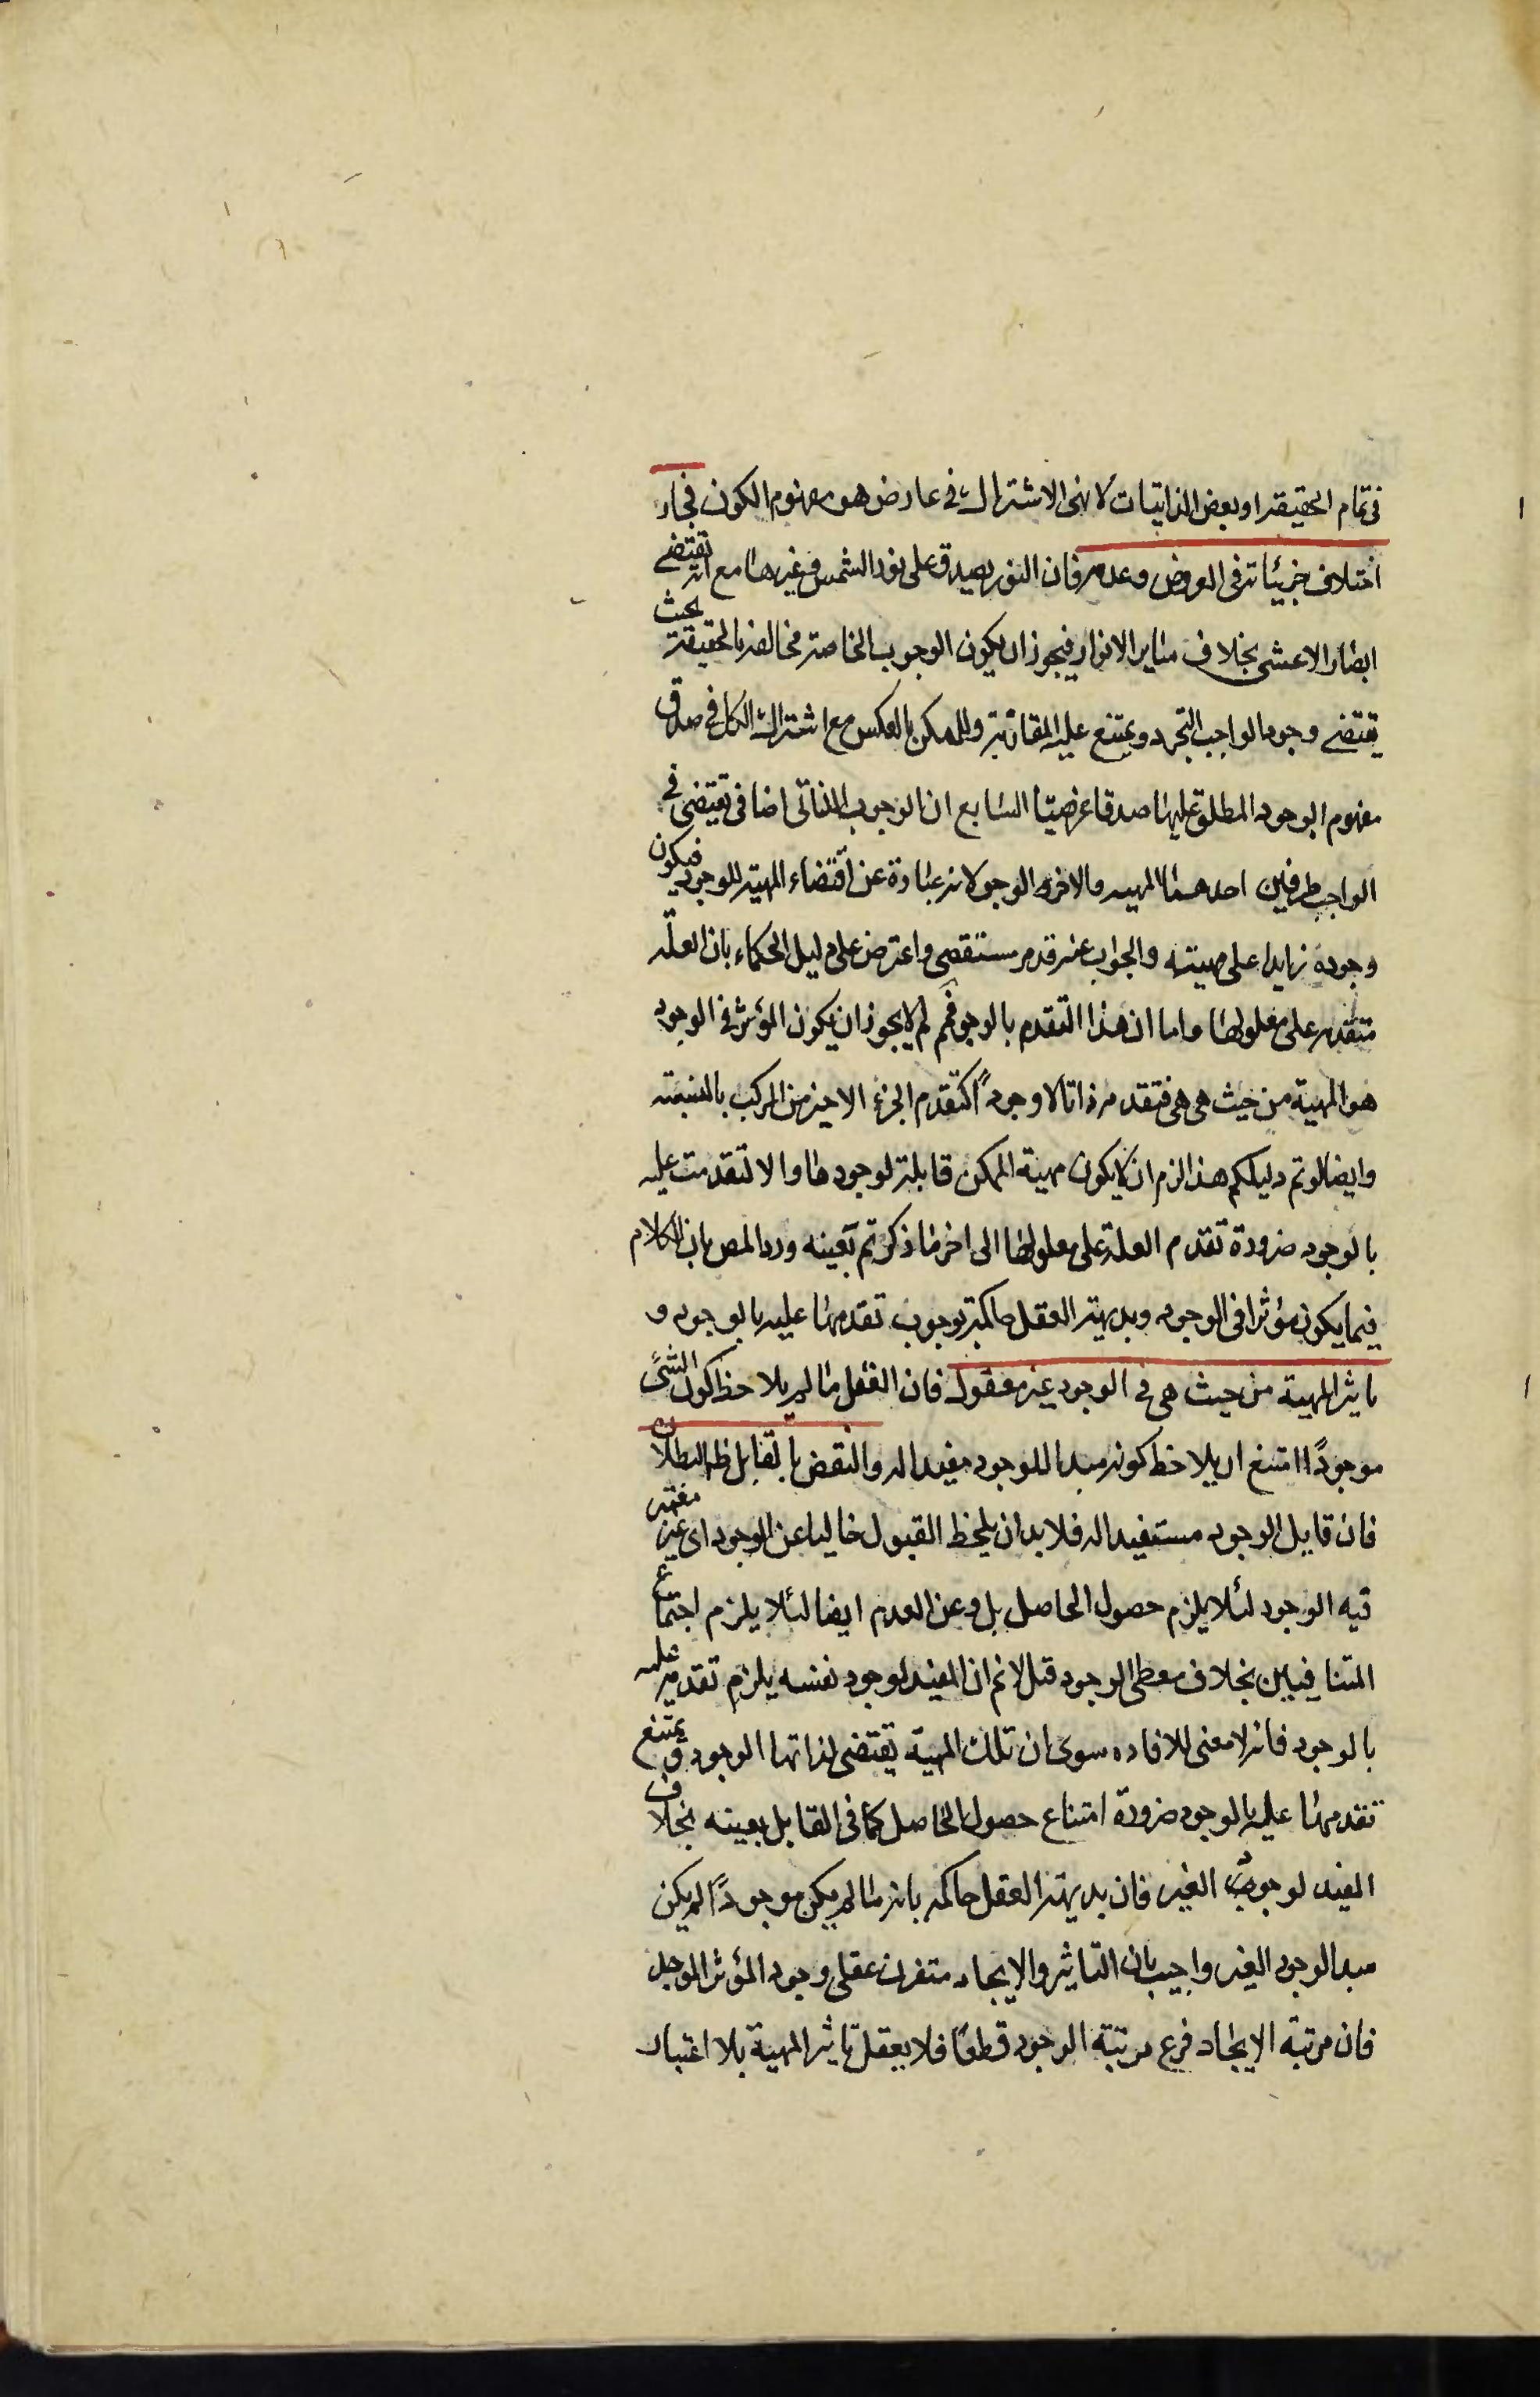 فی تمام الحقیقة او بعض الذاتیات لا بنی الاشتراک فی عارض هو مفهوم الکون فجاز
اختلاف جزئیاته فی العروض وعدمه فان النور یصدق علی نور الشمس وغیرها مع انه تقتضی
ابصار الاعشی بخلاف سایر الانوار فیجوز ان یکون الوجوب الخاصة مخالفة بالحقیقة بحث
یقتضی وجود الواجب التجرد ویمتنع علیه المقارنة وللممکن بالعکس مع اشتراک الکل فی صدق
مفهوم الوجود المطلق علیها صدقا عرضیتا السابع ان الوجوب الذاتی اضافی تقتضی فی
الواجب طرفین احدهما المهیه والاخر الوجو لانه عبارة عن اقتضاء المهیة للوجود فیکون
وجوده زایدا علی مهیته والجواب عنه قد مر مستقصی واعترض علی دلیل الحکماء بان العلّه
متقدمه علی معلولها واما ان هذا التقدم بالوجو فم لم لایجوز ان یکون المؤثر فی الوجود
هو المهیة من حیث هی هی فتقدمه ذاتا لا وجودًا کتقدم الجزء الاخیر من المرکب بالنسبته
وایضا لو تم دلیلکم هذا لزم ان لا یکون مهیة الممکن قابلة لوجودها والا لتقدمت علیه
بالوجود ضرورة تقدم العلة علی معلولها الی اخر ما ذکرتم بعینه ورد المص بان الکلام
فیما یکون مؤثرا فی الوجود وبدیهة العقل حاکمة بوجوب تقدمها علیه بالوجود و
تاثیر المهیة من حیث هی فی الوجود غیر معقول فان العقل ما لم یلاحظ کون الشئ
موجودًا امتنع ان یلاحظ کونه مبدا للوجود مفیدا له والنقض بالقابل ظ البطلان
فان قابل الوجود مستفید له فلا بد ان یلحظ القبول خالیا عن الوجود ای غیر معتبر
فیه الوجود لئلا یلزم حصول الحاصل بل وعن العدم ایضا لئلا یلزم اجتماع
المتنافیین بخلاف معطی الوجود قیل لانم ان المفید لوجود نفسه یلزم تقدمه علیه
بالوجود فانه لا معنی للافاده سوی ان تلک المهیة تقتضی لذاتها الوجود و یمتنع
تقدمها علیه بالوجود ضرورة امتناع حصول الحاصل کما فی القابل بعینه بخلاف
المفید لوجود الغیر فان بدیهة العقل حاکمه بانه ما لم یکن موجودًا لم یکن
مبدا لوجود الغیر واجیب بان التاثیر والایجاد متفرع علی وجود المؤثر الموجد
فان مرتبة الایجاد فرع مرتبة الوجود قطعًا فلا یعقل تاثیر المهیة بلا اعتبار